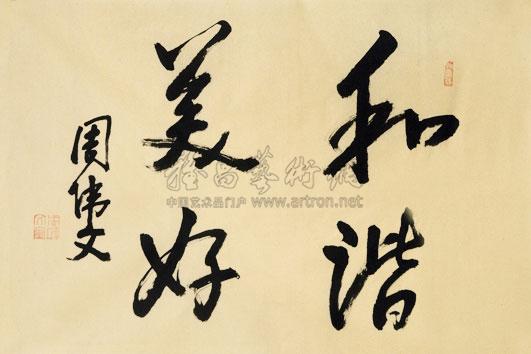 和谐
美好
周伟文
雅昌藝術網
中国艺术品门户 www.artron.net